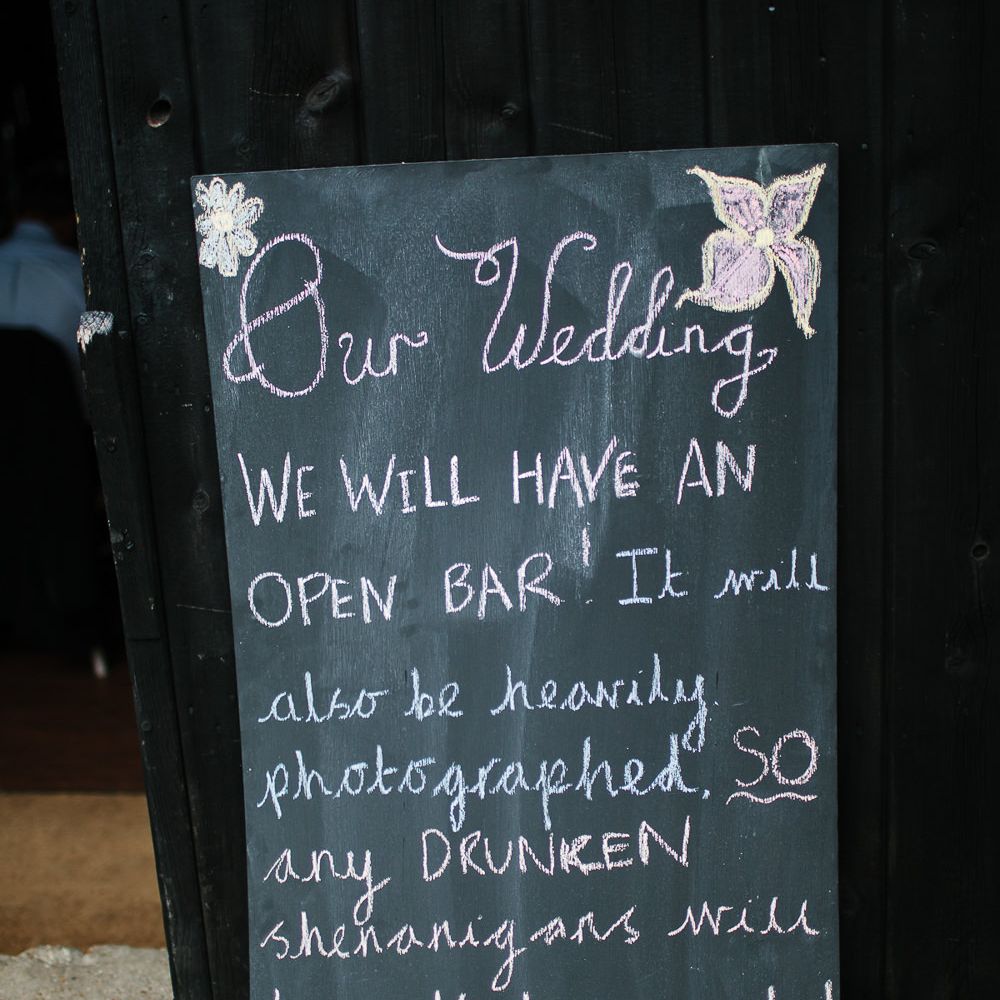 Our Wedding
WE WILL HAVE AN
OPEN BAR! It will
also be heavily
photographed, SO
any DRUNKEN
shenanigans will